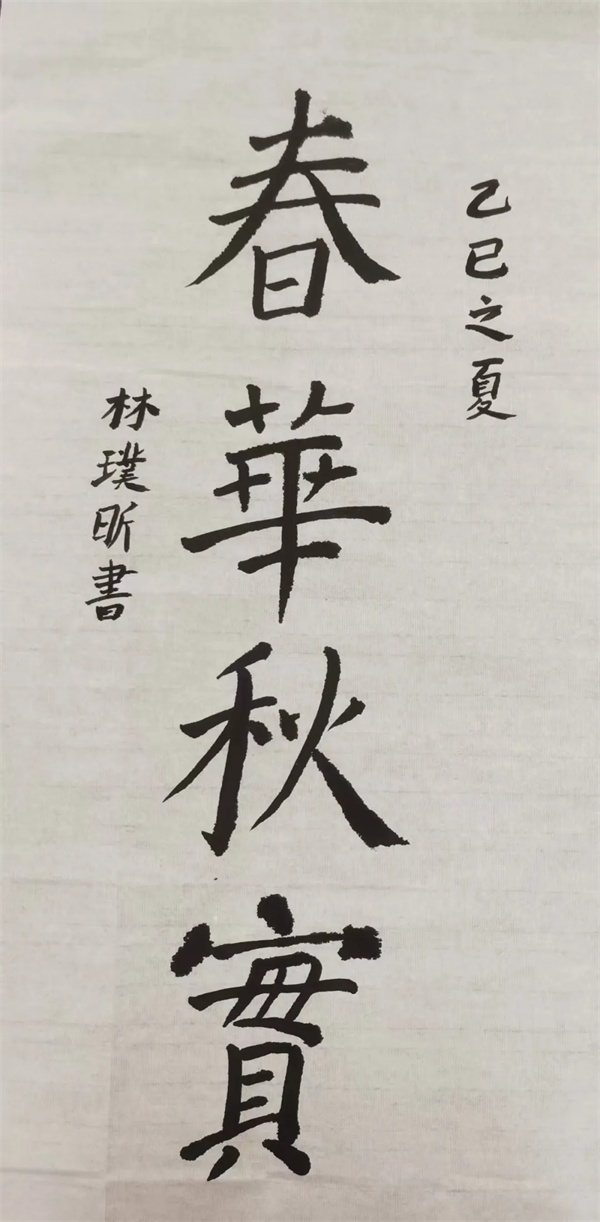 乙巳之夏
春華秋實
林璞昕書